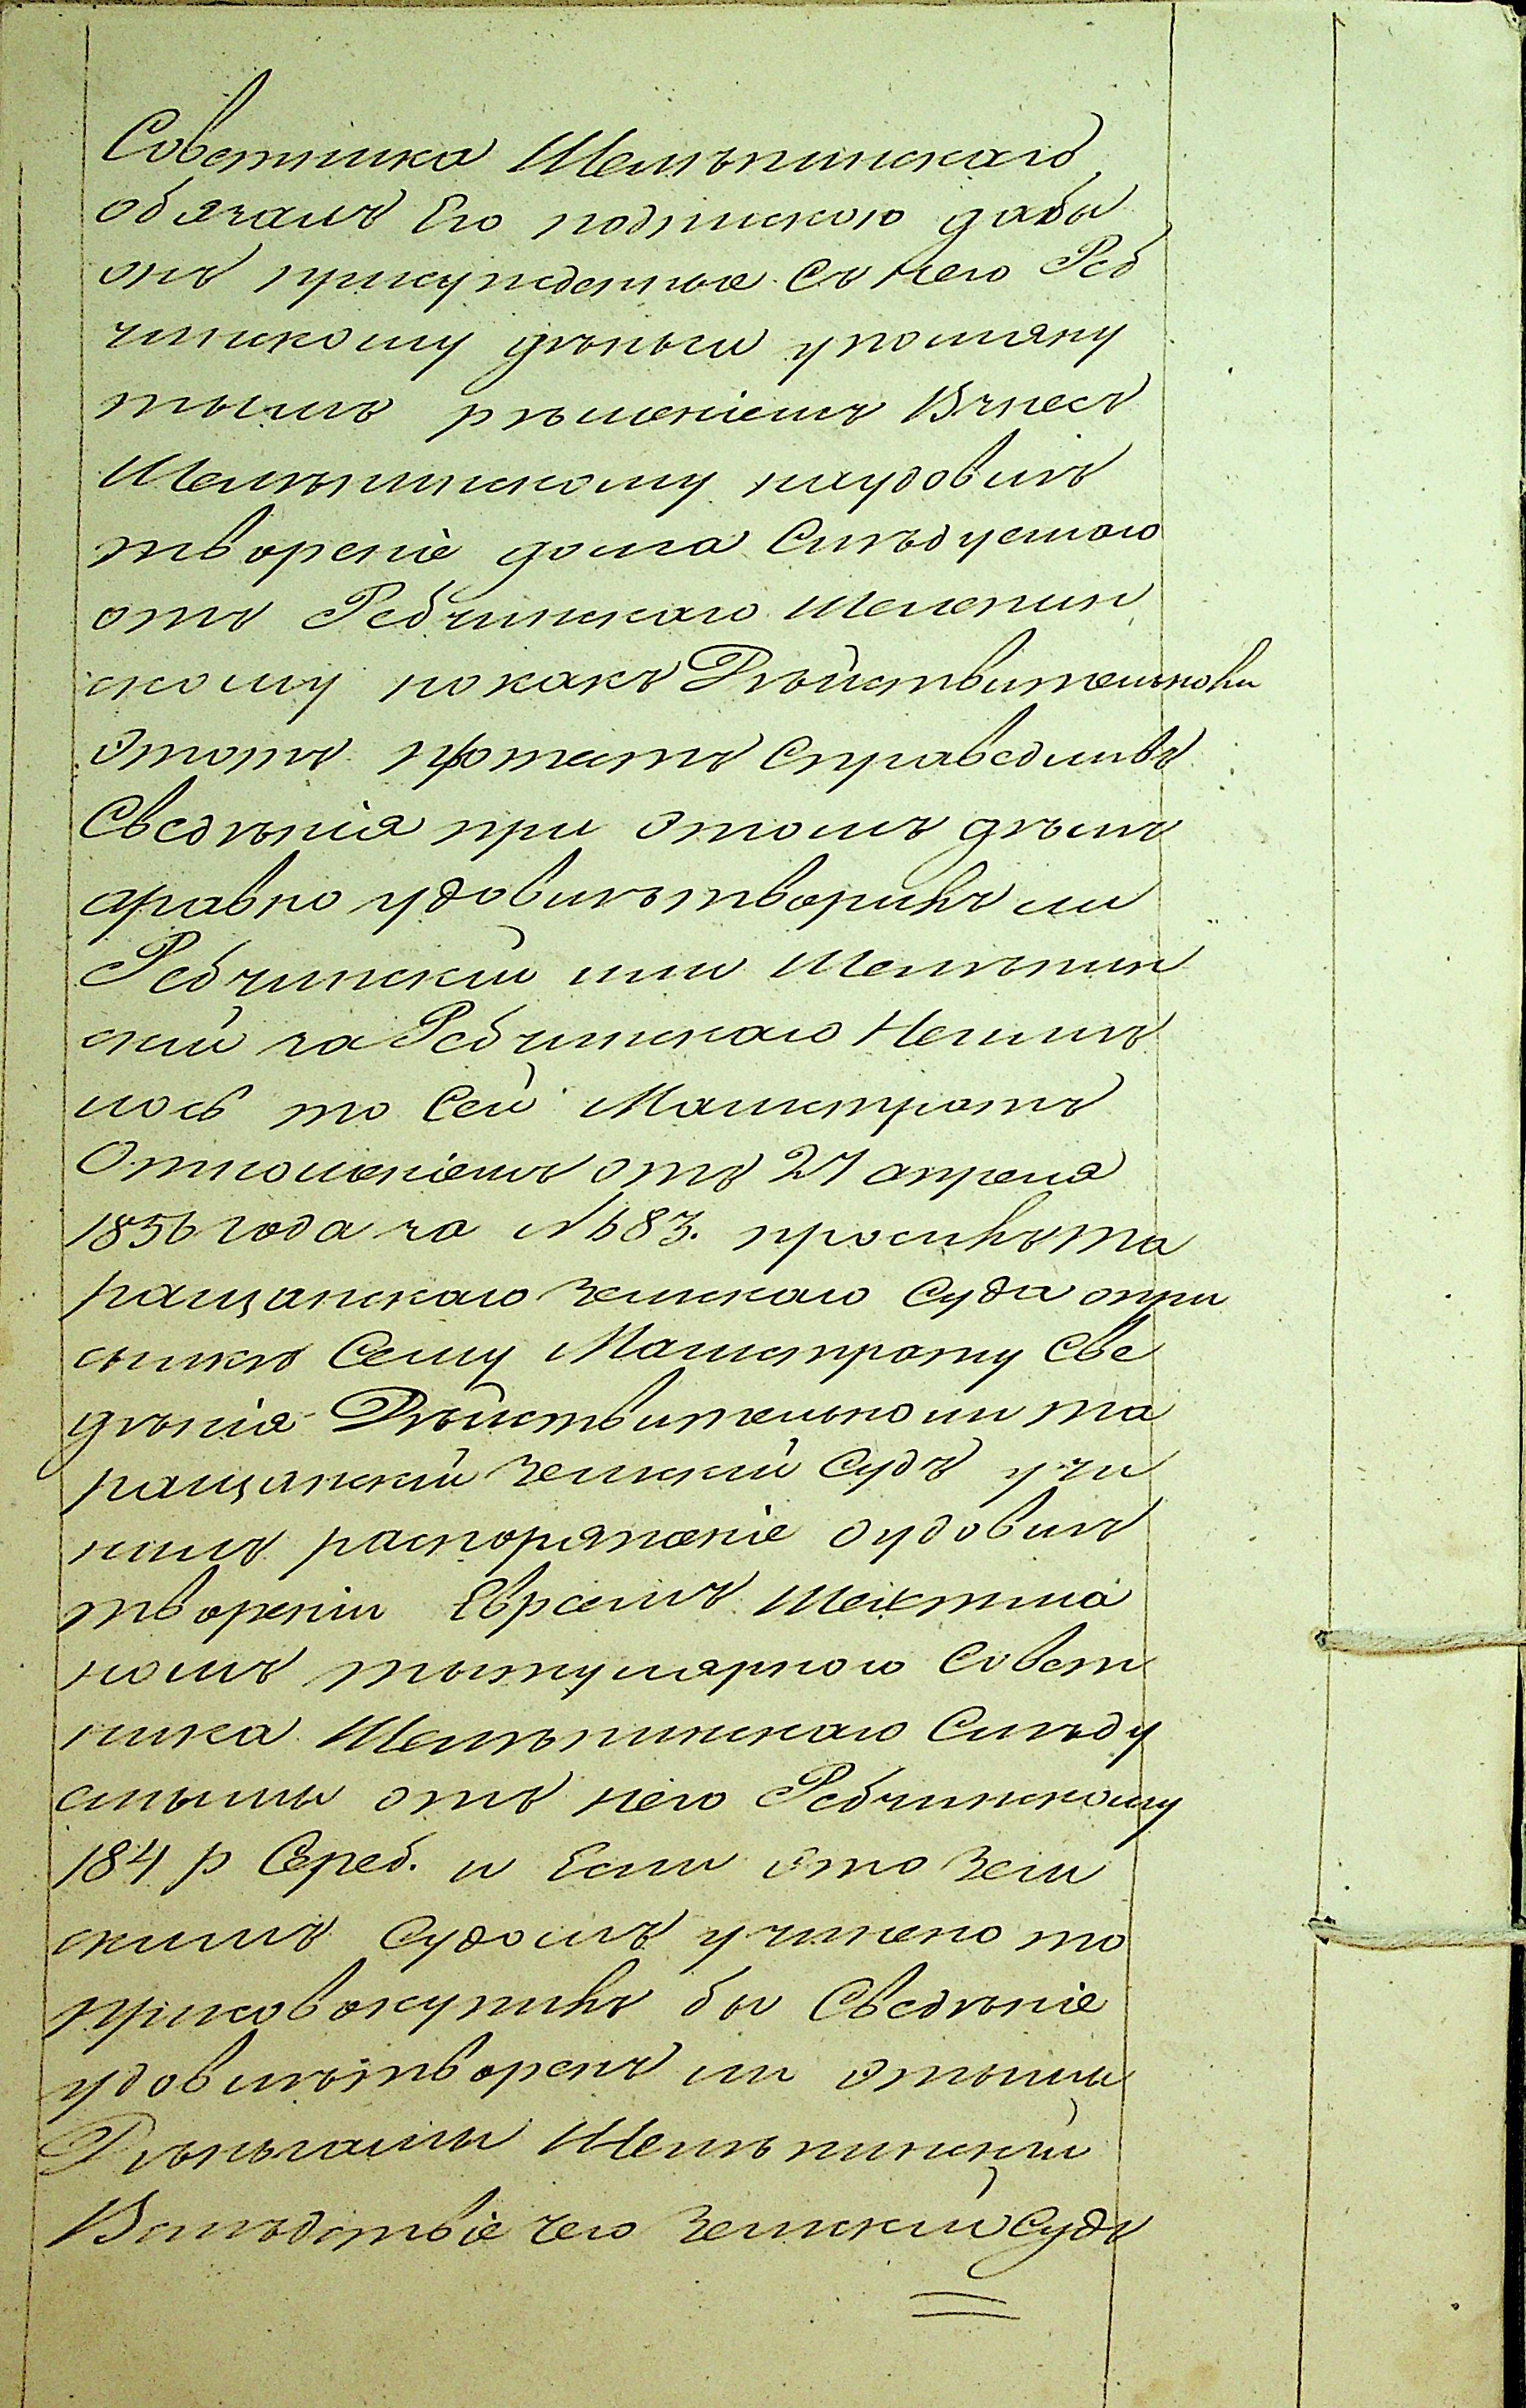 Советника Шелѣпинскаго
обязалъ Его подпискою дабы
онъ присужденные Съ него Реб
чинскому дѣньги упомяну
тымъ рѣшеніемъ Взнесъ
Шелѣпинскому наудовлѣ
твореніе долга Слѣдуемаго
отъ Ребчинскаго Шелепин
скому но какъ Дѣйствительноли
Этотъ протестъ Справедливъ
Сведѣнія при Этомъ дѣлѣ
аравно удовлѣтворилъ ли
Ребчинскій или Шелѣпин
скій за Ребчинскаго Неимѣ
лось то Сей Магистратъ
Отношеніемъ отъ 27 апреля
1856 года за № 683. просилъ Та
ращанскаго Земскаго Суда опри
сылкѣ Сему Магистрату Све
дѣнія Дѣйствительно ли та
ращанскій Земскій Судъ учи
нилъ распоряженіе оудовлѣ
твореніи Евреемъ
номъ тытулярного Совет
ника Шелѣпинскаго Слѣду
емыми отъ него Ребчинскому
184 р Сереб. и Если Это Зем
скимъ Судомъ учинено то
присовокупилъ бы Сведѣніе
удовлѣтворенъ ли Этыми
Дѣньгами Шелѣпинскій
Вслѣдствіе чего Земскій Судъ